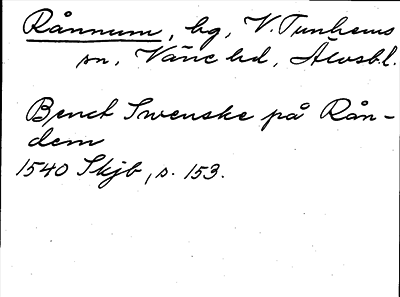 Rånnum, bg, V. Tunhems
sn, Väne hd, Älvsb.l.
Bendt Swenske på Rån-
dem
1540 Skjb, s. 153.